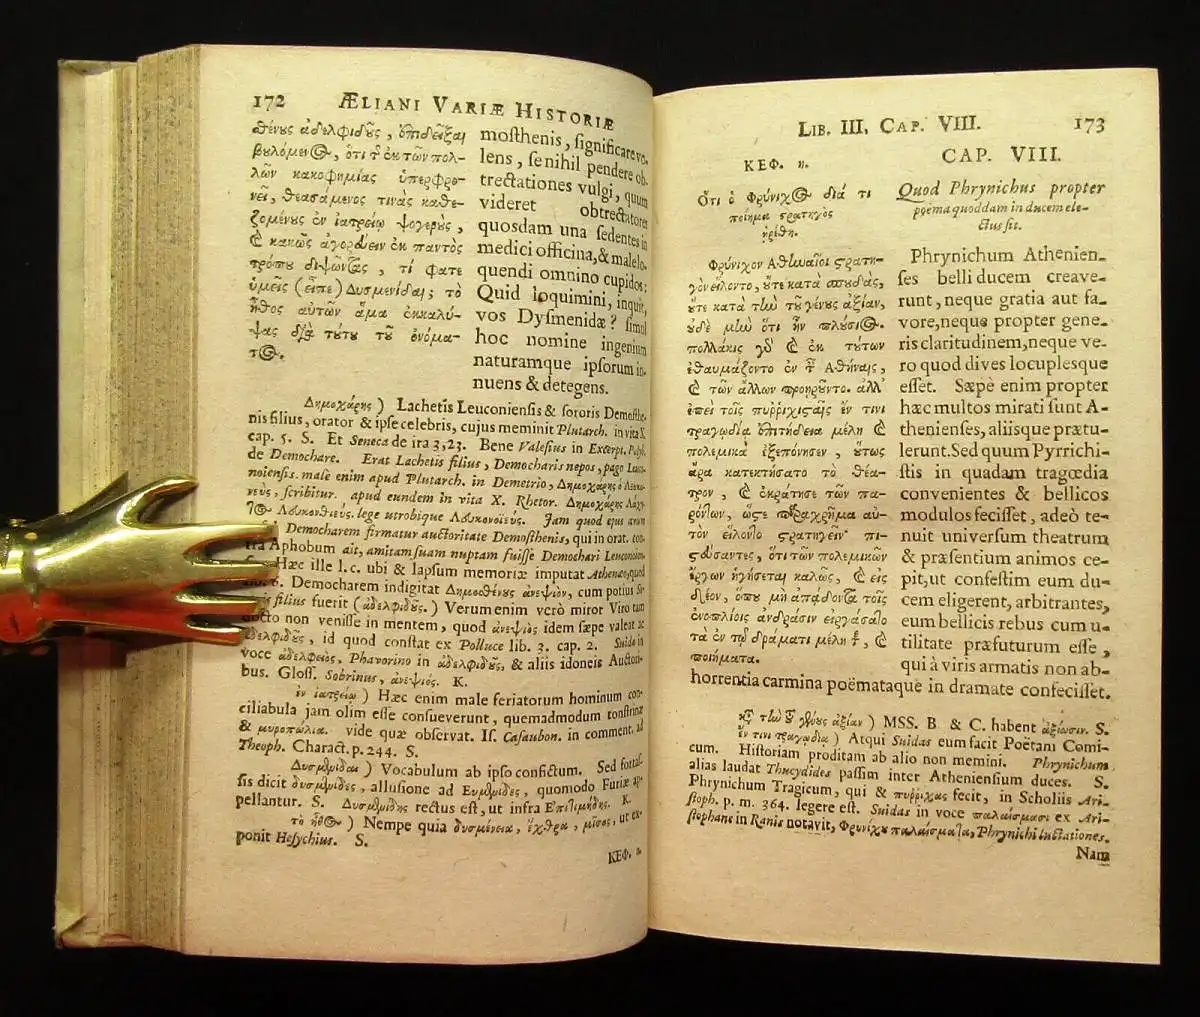 172 ÆLIANI VARIÆ HISTORIÆ
βȣλόμεν, ὅτι
λῶν κακοφημίας ὑπερφρο-
νεῖ, θεασάμενος τινὰς καθε-
ζομένȣς ἐν ἰατρείῳ
κακῶς ἀγορεύειν ἐκ παντὸς
τρόπȣ διψῶντας, τί φατε
ὑμεῖς (εἶπε) Δυσμενίδαι; τὸ
ἦθος αὐτῶν ἅμα ἐκκαλύ-
ψας διὰ τȣ́τȣ τοῦ ὀνόμα-
τ.
moſthenis, ſignificare vo-
lens, ſe nihil pendere ob-
trectationes vulgi, quum
videret obtrectatores
quosdam una ſedentes in
medici officina, & malelo-
quendi omnino cupidos:
Quid loquimini, inquit,
vos Dyſmenidæ? ſimul
hoc nomine ingenium
naturamque ipſorum in-
nuens & detegens.
Δημοχάρης) Lachetis Leuconienſis & ſororis Demoſthe-
nis filius, orator & ipſe celebris, cujus meminit Plutarch. in vita X.
cap. 5. S. Et Seneca de ira 3, 23. Bene Valeſius in Excerpt. Polyb.
de Demochare. Erat Lachetis filius, Democharis nepos, pago Leuco-
noienſis. male enim apud Plutarch. in Demetrio, Δημοχάρης ὁ
ſcribitur. apud eundem in vita X. Rhetor. Δημοχάρης
lege utrobique Jam quod ejus avum
Democharem firmatur auctoritate Demoſthenis, qui in orat. con-
Aphobum ait, amitam ſuam nuptam fuiſſe Demochari Leuconoien-
Hæc ille l.c. ubi & lapſum memoriæ imputat Athenæo, quod
6. Democharem indigitat Δημοσθένȣς ἀνεψιὸν, cum potius
filius fuerit (ἀδελφιδȣ̃ς.) Verum enim verò miror Viro tam
docto non veniſſe in mentem, quod ἀνεψιὸς idem ſæpe valeat ac
ἀδελφιδȣ̃ς, id quod conſtat ex Polluce lib. 3. cap. 2. Suida in
voce Phavorino in ἀδελφιδȣ̃ς, & aliis idoneis Auctori-
bus. Gloſſ. Sobrinus, ἀνεψιός. K.
ἐν ἰατρείῳ) Hæc enim male feriatorum hominum con-
ciliabula jam olim eſſe conſueverunt, quemadmodum tonſtrinæ
& μυροπώλια. vide quæ obſervat. Iſ. Caſaubon. in comment. ad
Theoph. Charact. p. 244. S.
Δυσμενίδαι) Vocabulum ab ipſo confictum. Sed fortaſ-
ſis dicit δυσμενίδες, alluſione ad Εὐμενίδες, quomodo Furiæ ap-
pellantur. S. Δυσμενίδης rectus eſt, ut infra Ἐπιτιμήδης. K.
τὸ ἦθ) Nempe quia δυσμένεια, ἔχθρα, μῖσος, ut ex-
ponit Heſychius. S.
ΚΕΦ. η.
LIB. III, CAP. VIII. 173
ΚΕΦ. η.
Ὅτι ὁ Φρύνιχ διά τι
ποίημα στρατηγὸς
ᾑρέθη.
Φρύνιχον Ἀθηναῖοι στρατη-
γὸν εἵλοντο, ȣ̓́τε κατὰ σπȣδὰς,
ȣ̓́τε κατὰ τὴν τοῦ γένȣς ἀξίαν,
ȣ̓δὲ μὴν ὅτι ἦν πλȣ́σι.
πολλάκις γὰρ ἐκ τȣ́των
ἐθαυμάζοντο ἐν τ. Ἀθήναις,
τῶν ἄλλων προηροῦντο. ἀλλ'
ἐπεὶ τοῖς πυῤῥιχισταῖς ἔν τινι
τραγῳδίᾳ ἐπιτήδεια μέλη
πολεμικὰ ἐξεπόνησεν, ȣ̓́τως
ἄρα κατεκτήσατο τὸ θέα-
τρον, ἐκράτησε τῶν πα-
ρόντων, ὥστε παραχρῆμα αὐ-
τὸν εἵλοντο στρατηγεῖν πι-
στεύσαντες, ὅτι τῶν πολεμικῶν
ἔργων ἡγήσεται καλῶς, εἰς
δέον, ὅπȣ μὴ ἀπᾴδοντα τοῖς
ἐνοπλίοις ἀνδράσιν εἰργάσατο
τὰ ἐν τῷ δράματι μέλη τε,
ποιήματα.
CAP. VIII.
Quod Phrynichus propter
poëma quoddam in ducem ele-
ctus ſit.
Phrynichum Athenien-
ſes belli ducem creave-
runt, neque gratia aut fa-
vore, neque propter gene-
ris claritudinem, neque ve-
ro quod dives locuplesque
eſſet. Sæpè enim propter
hæc multos mirati ſunt A-
thenienſes, aliisque prætu-
lerunt. Sed quum Pyrrichi-
ſtis in quadam tragœdia
convenientes & bellicos
modulos feciſſet, adeò te-
nuit univerſum theatrum
& præſentium animos ce-
pit, ut confeſtim eum du-
cem eligerent, arbitrantes,
eum bellicis rebus cum u-
tilitate præfuturum eſſe,
qui à viris armatis non ab-
horrentia carmina poëmataque in dramate confeciſſet.
ἀξίαν) MSS. B. & C. habent ἀξίωσιν. S.
ἔν τινι τραγῳδίᾳ) Atqui Suidas eum facit Poëtam Comi-
cum. Hiſtoriam proditam ab alio non memini. Phrynichum
alias laudat Thucydides paſſim inter Athenienſium duces. S.
Phrynichum Tragicum, qui & πυῤῥίχας fecit, in Scholiis Ari-
ſtoph. p. m. 364. legere eſt. Suidas in voce παλαίσμασι ex Ari-
ſtophane in Ranis notavit, Φρυνίχȣ παλαίσματα, Phrynichi luctationes.
Nam